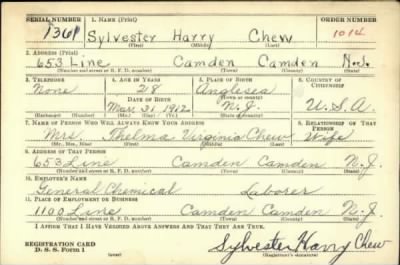 SERIAL NUMBER 1. NAME (Print) ORDER NUMBER
1361 Sylvester Harry Chew 1014
(First) (Middle) (Last)
2. ADDRESS (Print)
653 Line Camden Camden N.J.
(Number and street or R. F. D. number) (Town) (County) (State)
3. TELEPHONE 4. AGE IN YEARS 5. PLACE OF BIRTH 6. COUNTRY OF CITIZENSHIP
None 28 Anglesea
DATE OF BIRTH (Town or county)
Mar. 31 1912 N.J. U.S.A.
(Exchange) (Number) (Mo.) (Day) (Yr.) (State or country)
7. NAME OF PERSON WHO WILL ALWAYS KNOW YOUR ADDRESS 8. RELATIONSHIP OF THAT PERSON
Mrs. Thelma Virginia Chew Wife
(Mr., Mrs., Miss) (First) (Middle) (Last)
9. ADDRESS OF THAT PERSON
653 Line Camden Camden N.J.
(Number and street or R. F. D. number) (Town) (County) (State)
10. EMPLOYER'S NAME
General Chemical Laborer
11. PLACE OF EMPLOYMENT OR BUSINESS
1100 Line Camden Camden N.J.
(Number and street or R. F. D. number) (Town) (County) (State)
I AFFIRM THAT I HAVE VERIFIED ABOVE ANSWERS AND THAT THEY ARE TRUE.
REGISTRATION CARD
D. S. S. Form 1 (over) Sylvester Harry Chew
(Registrant's signature)